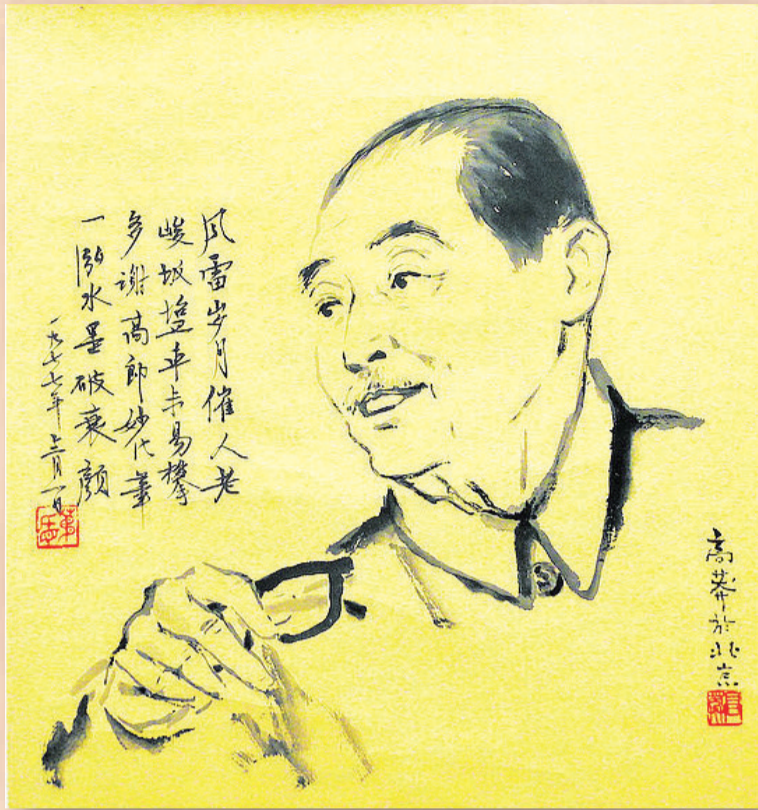 风雷岁月催人老
峻坂塩车未易攀
多谢高郎妙化笔
一泓水墨破衰颜
一九七七年三月一日
高莽於北京